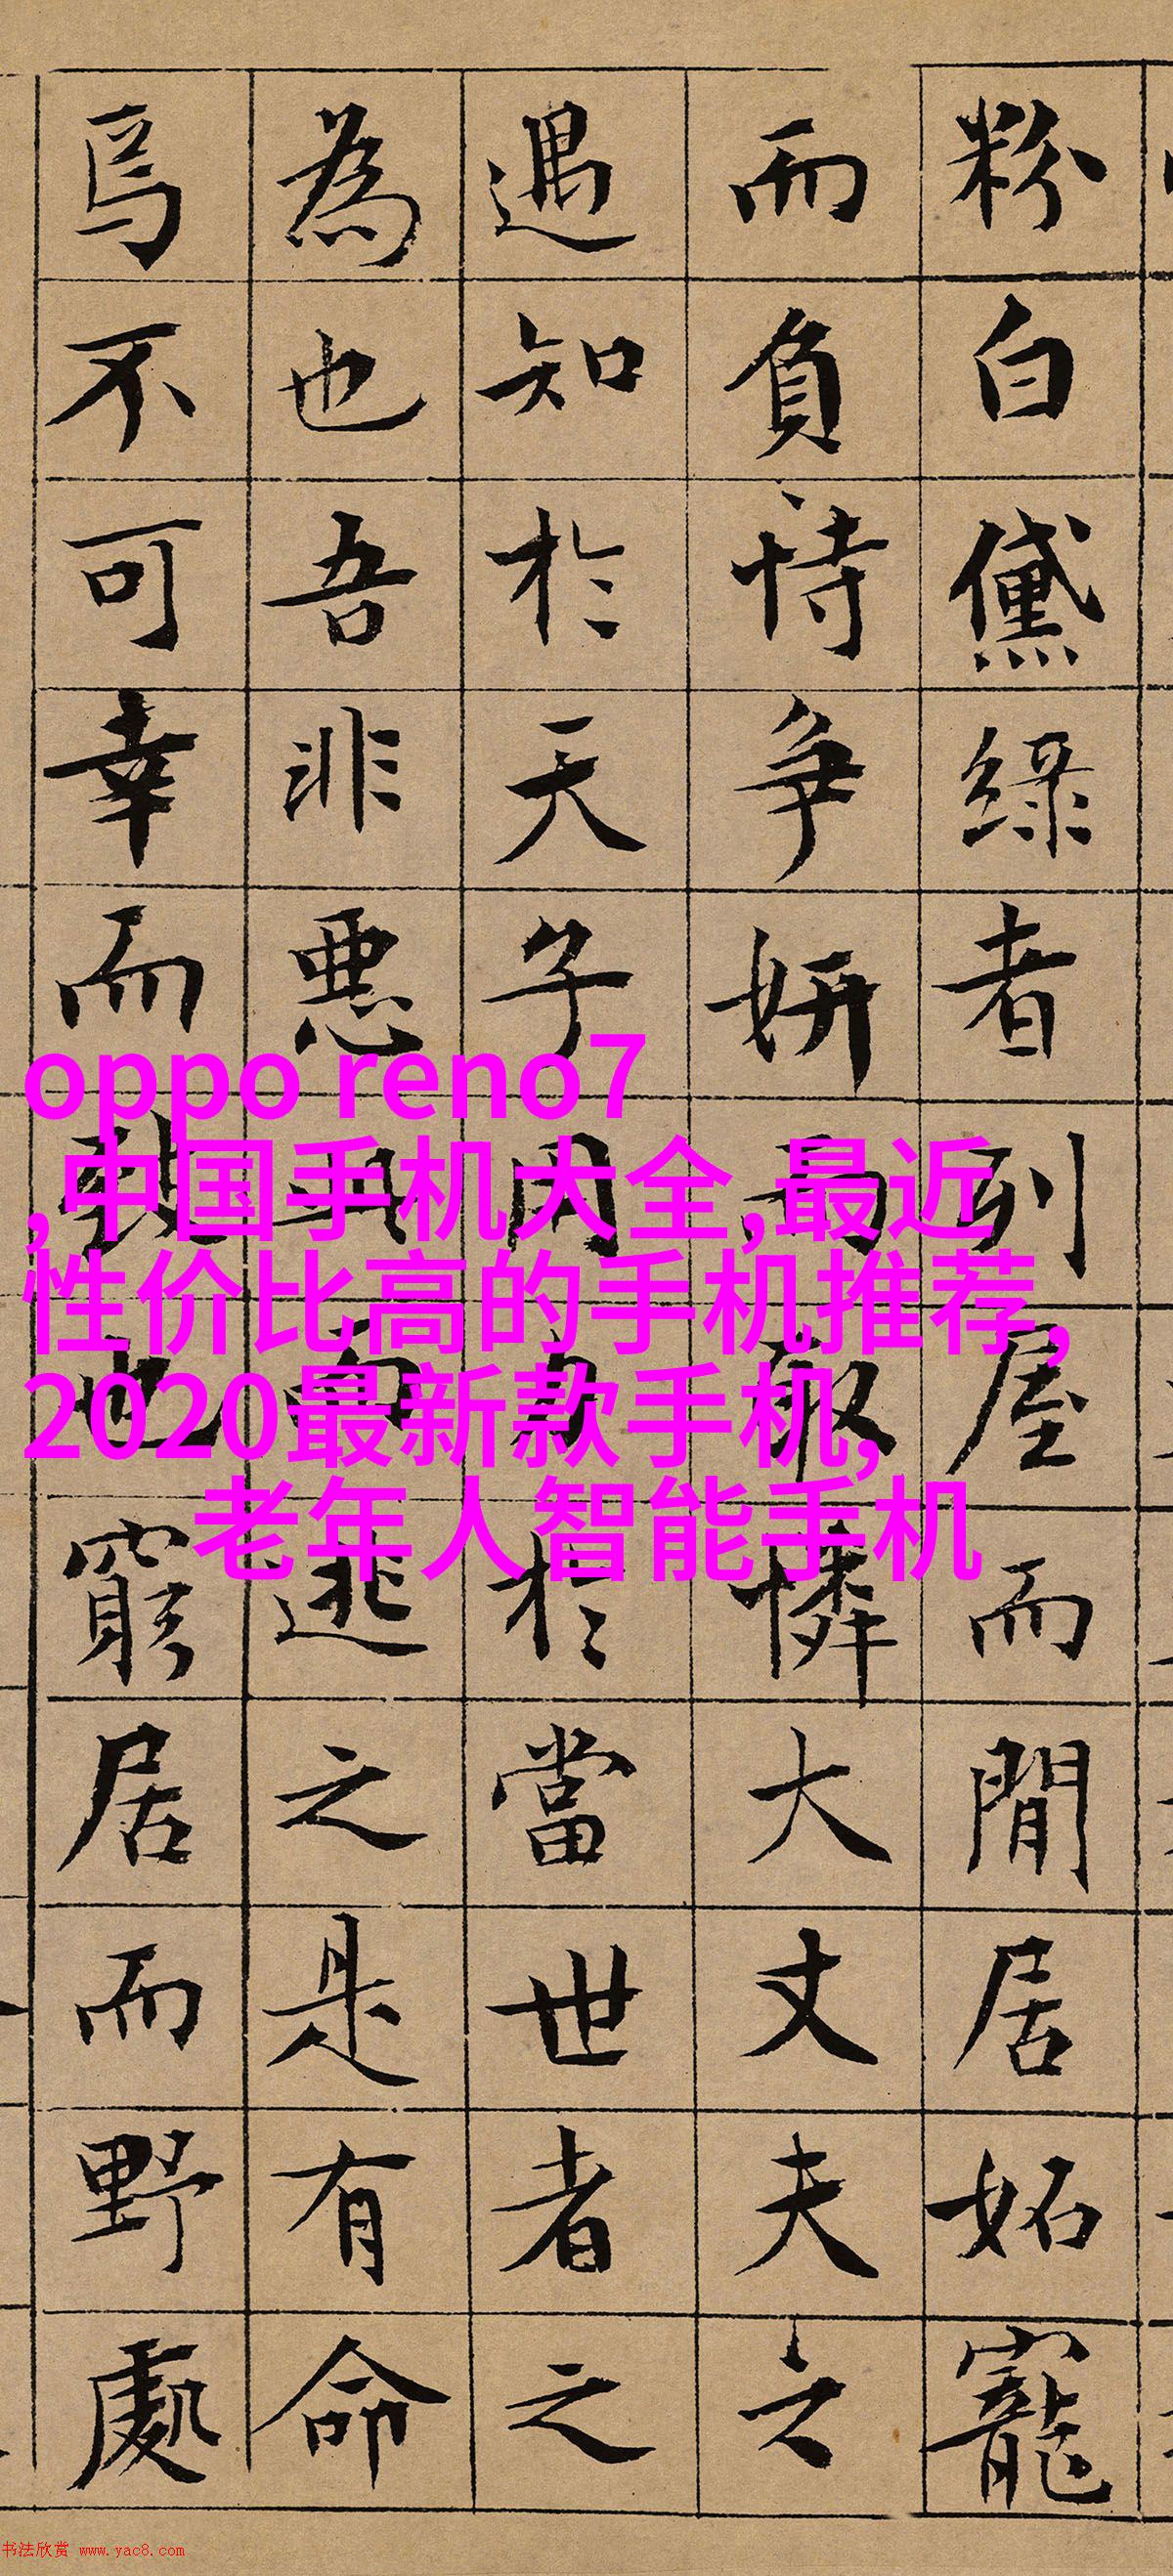 粉白黛綠者列屋而閒居妬寵
而負恃爭妍而取憐大丈夫之
遇知於天子用力於當世者之
為也吾非惡此而逃之是有命
焉不可幸而致也窮居而野處
oppo reno7
,中国手机大全,最近
性价比高的手机推荐,
2020最新款手机,
老年人智能手机
书法欣赏 www.yac8.com